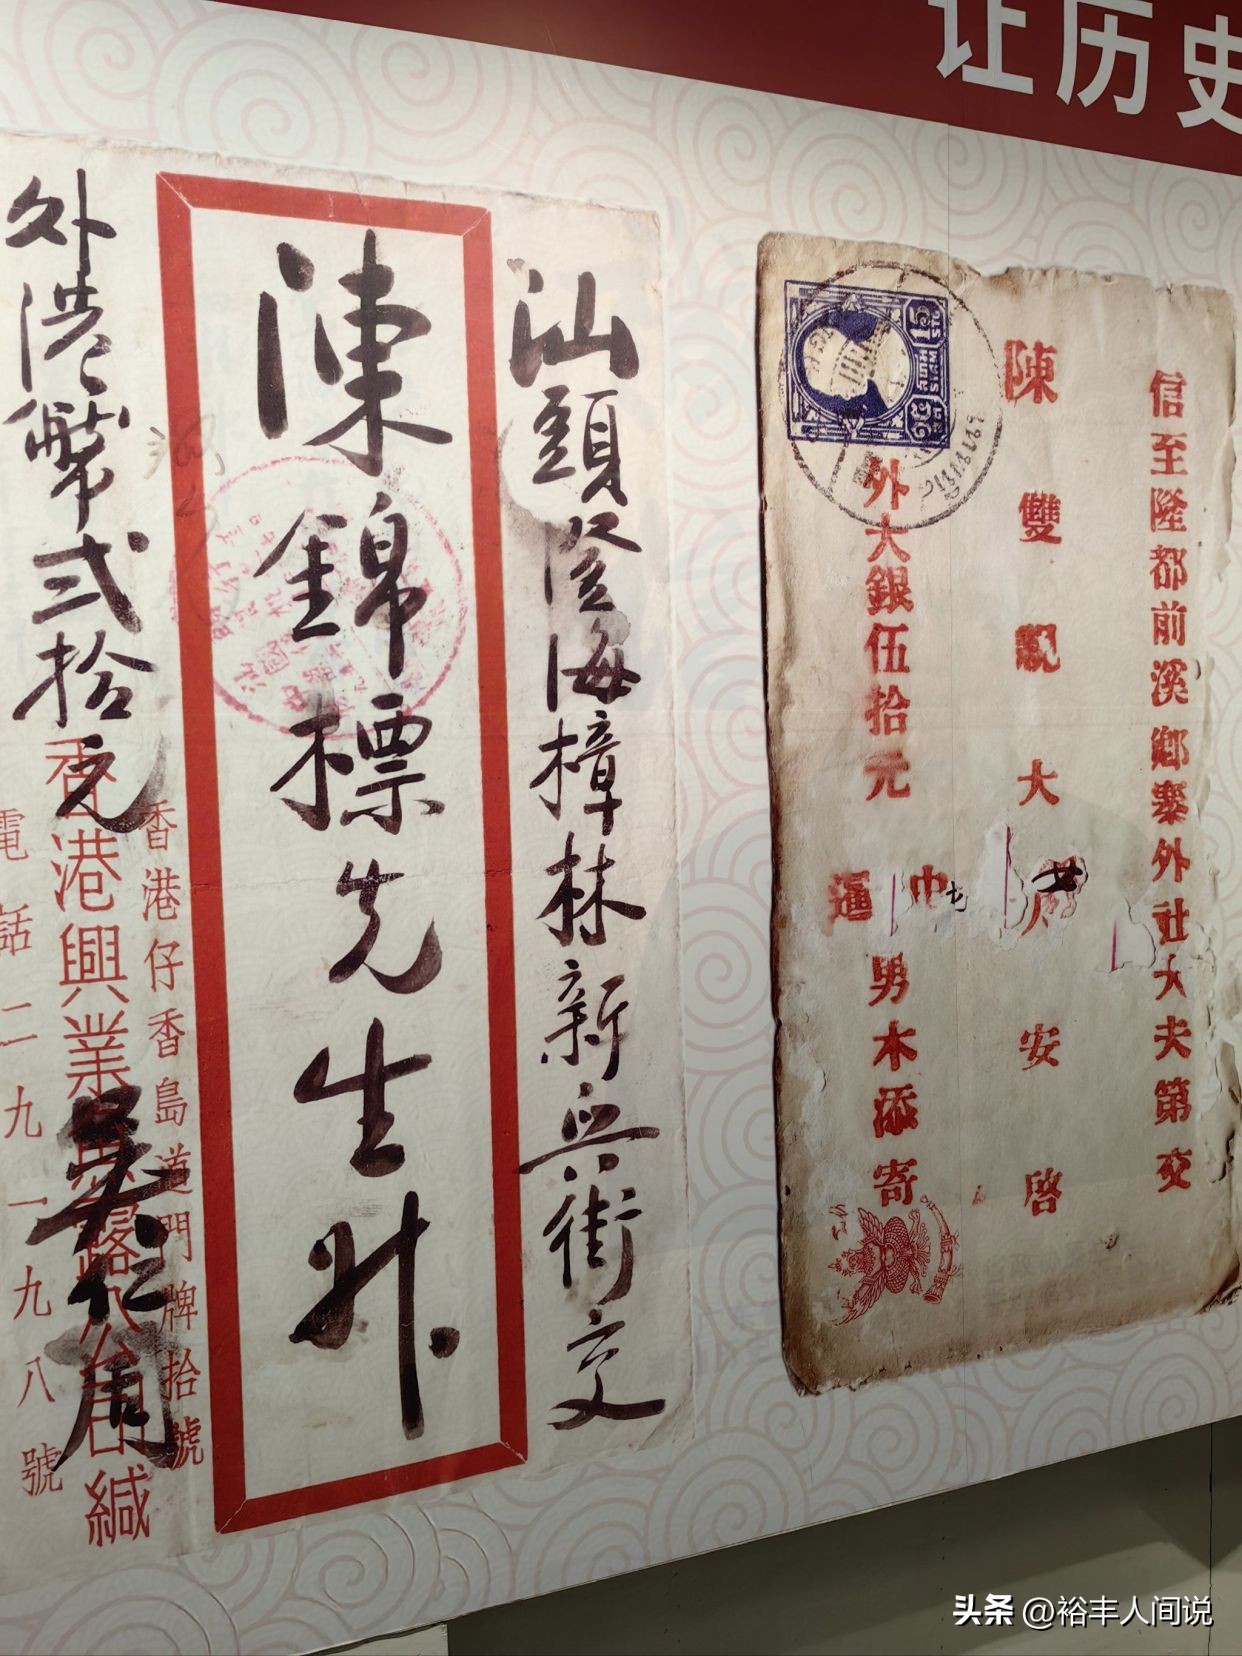 让历史
信至隆都前溪鄉寨外社大夫第交
陳雙親大人安啓
外大銀伍拾元
男木添寄
15
STG
SIAM
汕頭澄海樟林新興街交
陳錦標先生升
外港幣弍拾元
吴仁周
香港仔香島道門牌拾號
香港興業
公司緘
電話二九一九八號
头条 @裕丰人间说